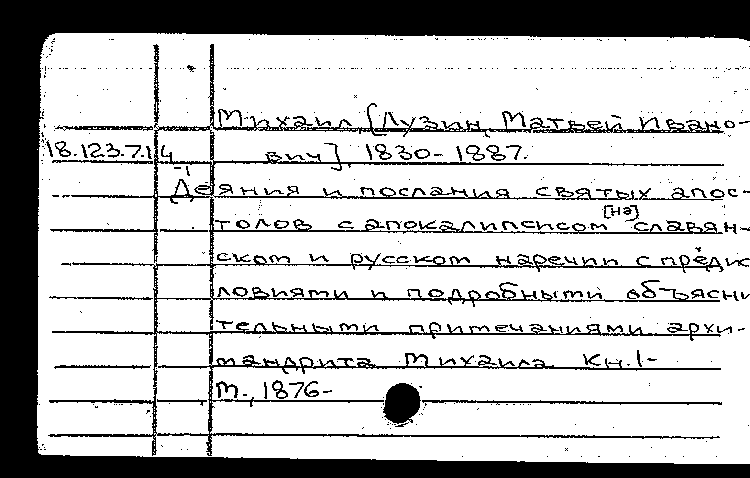 Михаил, [Лузин, Матвей Ивано-
18.123.7.14 вич], 1830-1887.
-1
Деяния и послания святых апос-
[на]
толов с апокалипсисом славян-
ском и русском наречии с предис
ловиями и подробными объясни
тельными примечаниями архи-
мандрита Михаила Кн.1-
М., 1876-